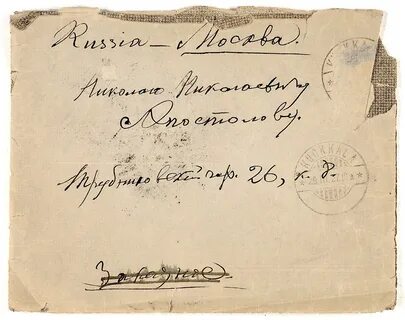 Russia — Москва.
Николаю Николаевичу
Апостолову.
Трубниковский пер. 26, к. 8.
Заказное
KUOKKALA